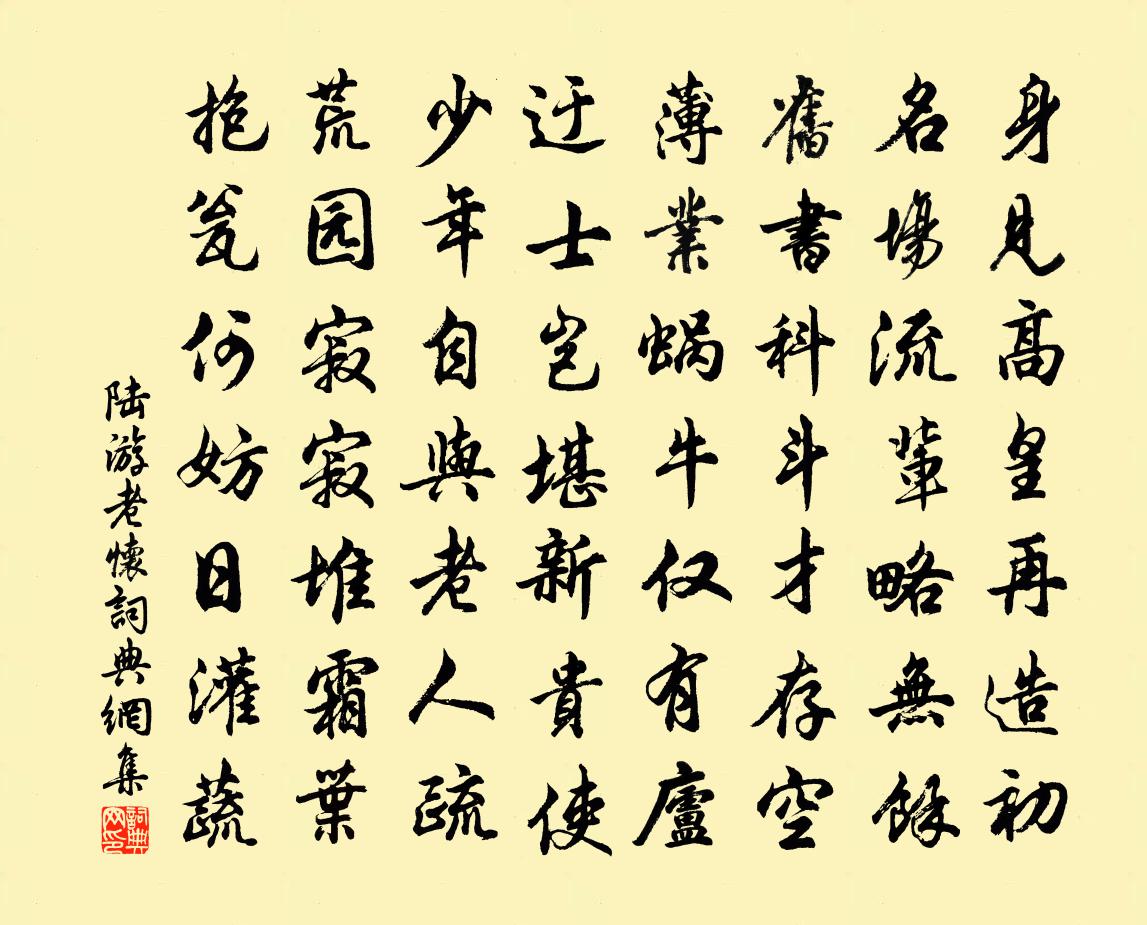 身見高皇再造初
名場流輩略無餘
舊書科斗才存空
薄業蝸牛仅有廬
迂士岂堪新貴使
少年自與老人疏
荒园寂寂堆霜葉
抱瓮何妨日灌蔬
陆游老懷詞典網集
詞典网印